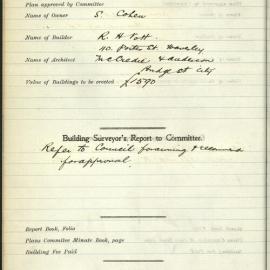 Plan approved by Committee
Name of Owner S. Cohen
Name of Builder R. H. Pott
40 Porter St. Waverley
Name of Architect McCredie & Anderson
Bridge St City
Value of Buildings to be erected £1590
Building Surveyor's Report to Committee.
Refer to Council for & recommend
for approval.
Report Book, Folio
Plans Committee Minute Book, page
Building Fee Paid